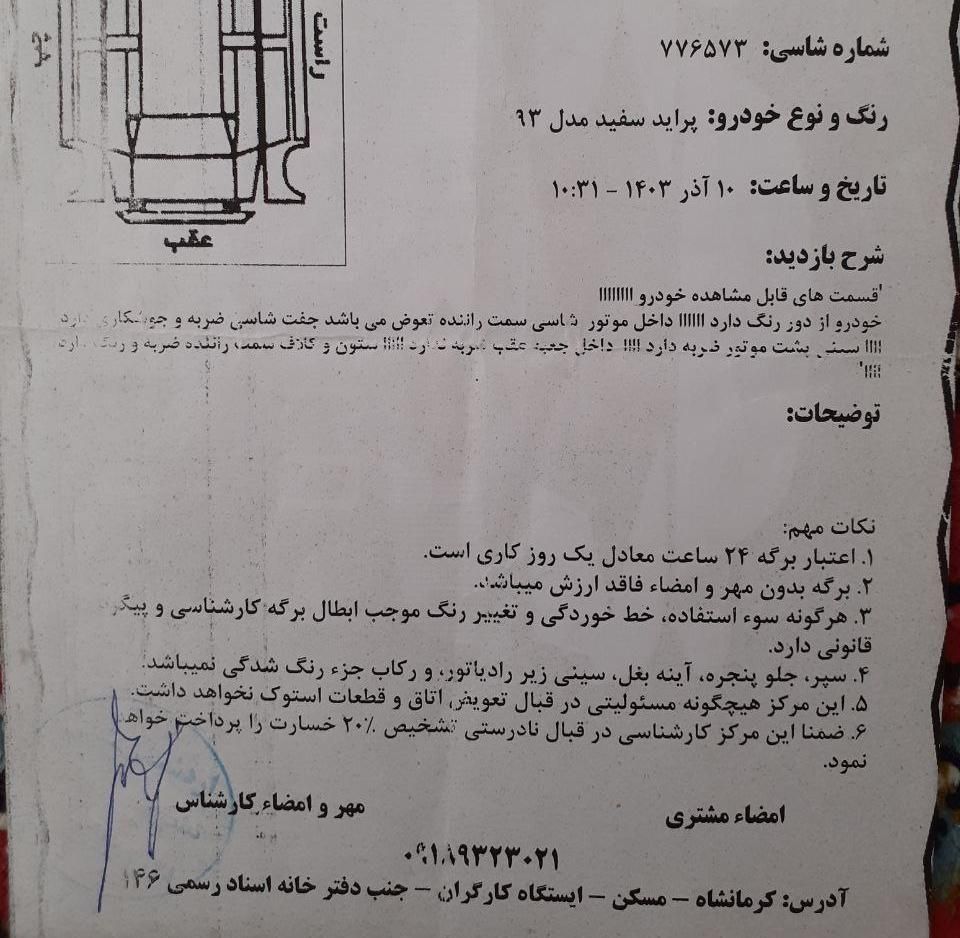 راست
شماره شاسی: ۷۷۶۵۷۳
رنگ و نوع خودرو: پراید سفید مدل ۹۳
تاریخ و ساعت: ۱۰ آذر ۱۴۰۳ - ۱۰:۳۱
عقب
شرح بازدید:
'قسمت های قابل مشاهده خودرو اااااااا
خودرو از دور رنگ دارد ااااااا داخل موتور شاسی سمت راننده تعوض می باشد جفت شاسی ضربه و جوشکاری دارد
اااا سینی پشت موتور ضربه دارد اااا داخل جعبه عقب ضربه ندارد ااااا ستون و کلاف سمت راننده ضربه و رنگ دارد
اااا'
توضیحات:
نکات مهم:
۱. اعتبار برگه ۲۴ ساعت معادل یک روز کاری است.
۲. برگه بدون مهر و امضاء فاقد ارزش میباشد.
۳. هرگونه سوء استفاده، خط خوردگی و تغییر رنگ موجب ابطال برگه کارشناسی و
قانونی دارد.
۴. سپر، جلو پنجره، آینه بغل، سینی زیر رادیاتور، و رکاب جزء رنگ شدگی نمیباشد.
۵. این مرکز هیچگونه مسئولیتی در قبال تعویض اتاق و قطعات استوک نخواهد داشت.
۶. ضمنا این مرکز کارشناسی در قبال نادرستی تشخیص ۲۰٪ خسارت را پرداخت خواهد
نمود.
امضاء مشتری
مهر و امضاء کارشناس
آدرس: کرمانشاه – مسکن – ایستگاه کارگران – جنب دفتر خانه اسناد رسمی ۱۴۶